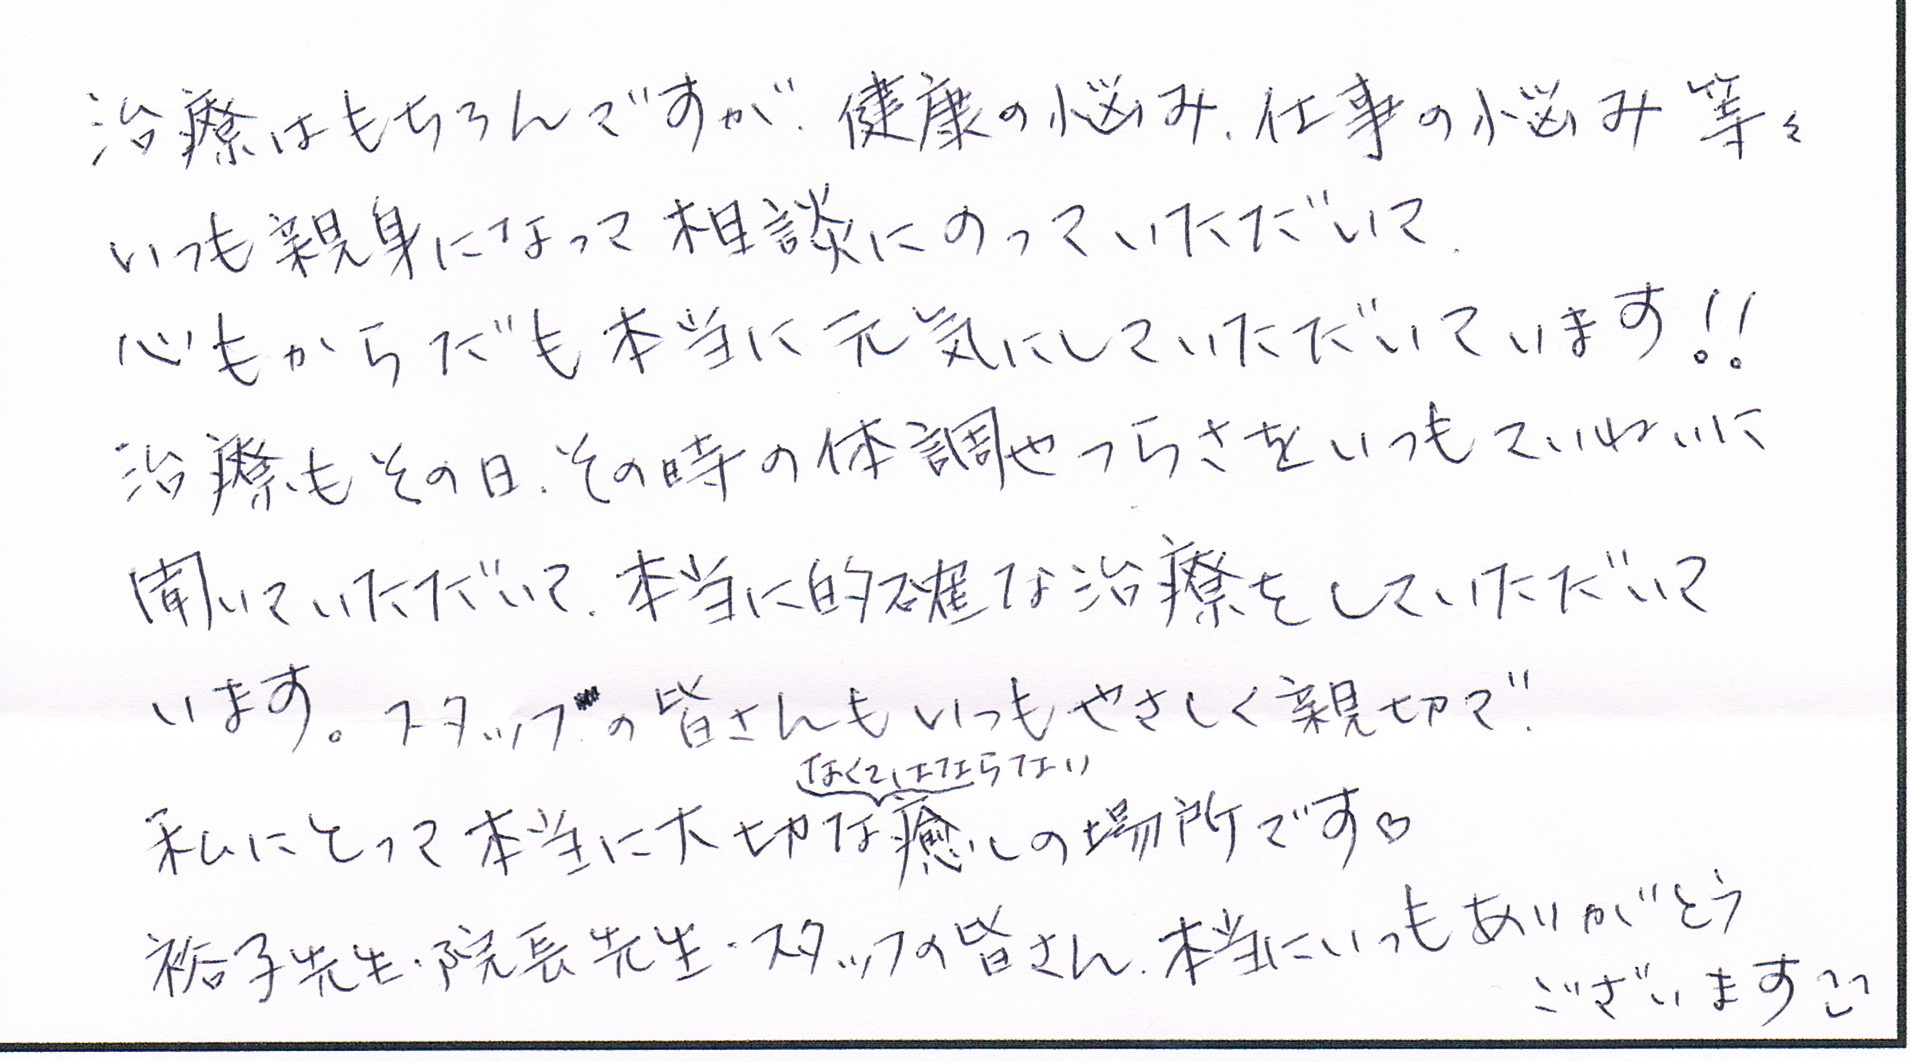 治療はもちろんですが、健康の悩み、仕事の悩み等々
いつも親身になって相談にのっていただいて、
心もからだも本当に元気にしていただいています!!
治療もその日、その時の体調やつらさをいつもていねいに
聞いていただいて、本当に的確な治療をしていただいて
います。スタッフの皆さんもいつもやさしく親切で、
なくてはならない
私にとって本当に大切な癒しの場所です♡
裕子先生・院長先生・スタッフの皆さん、本当にいつもありがとう
ございます